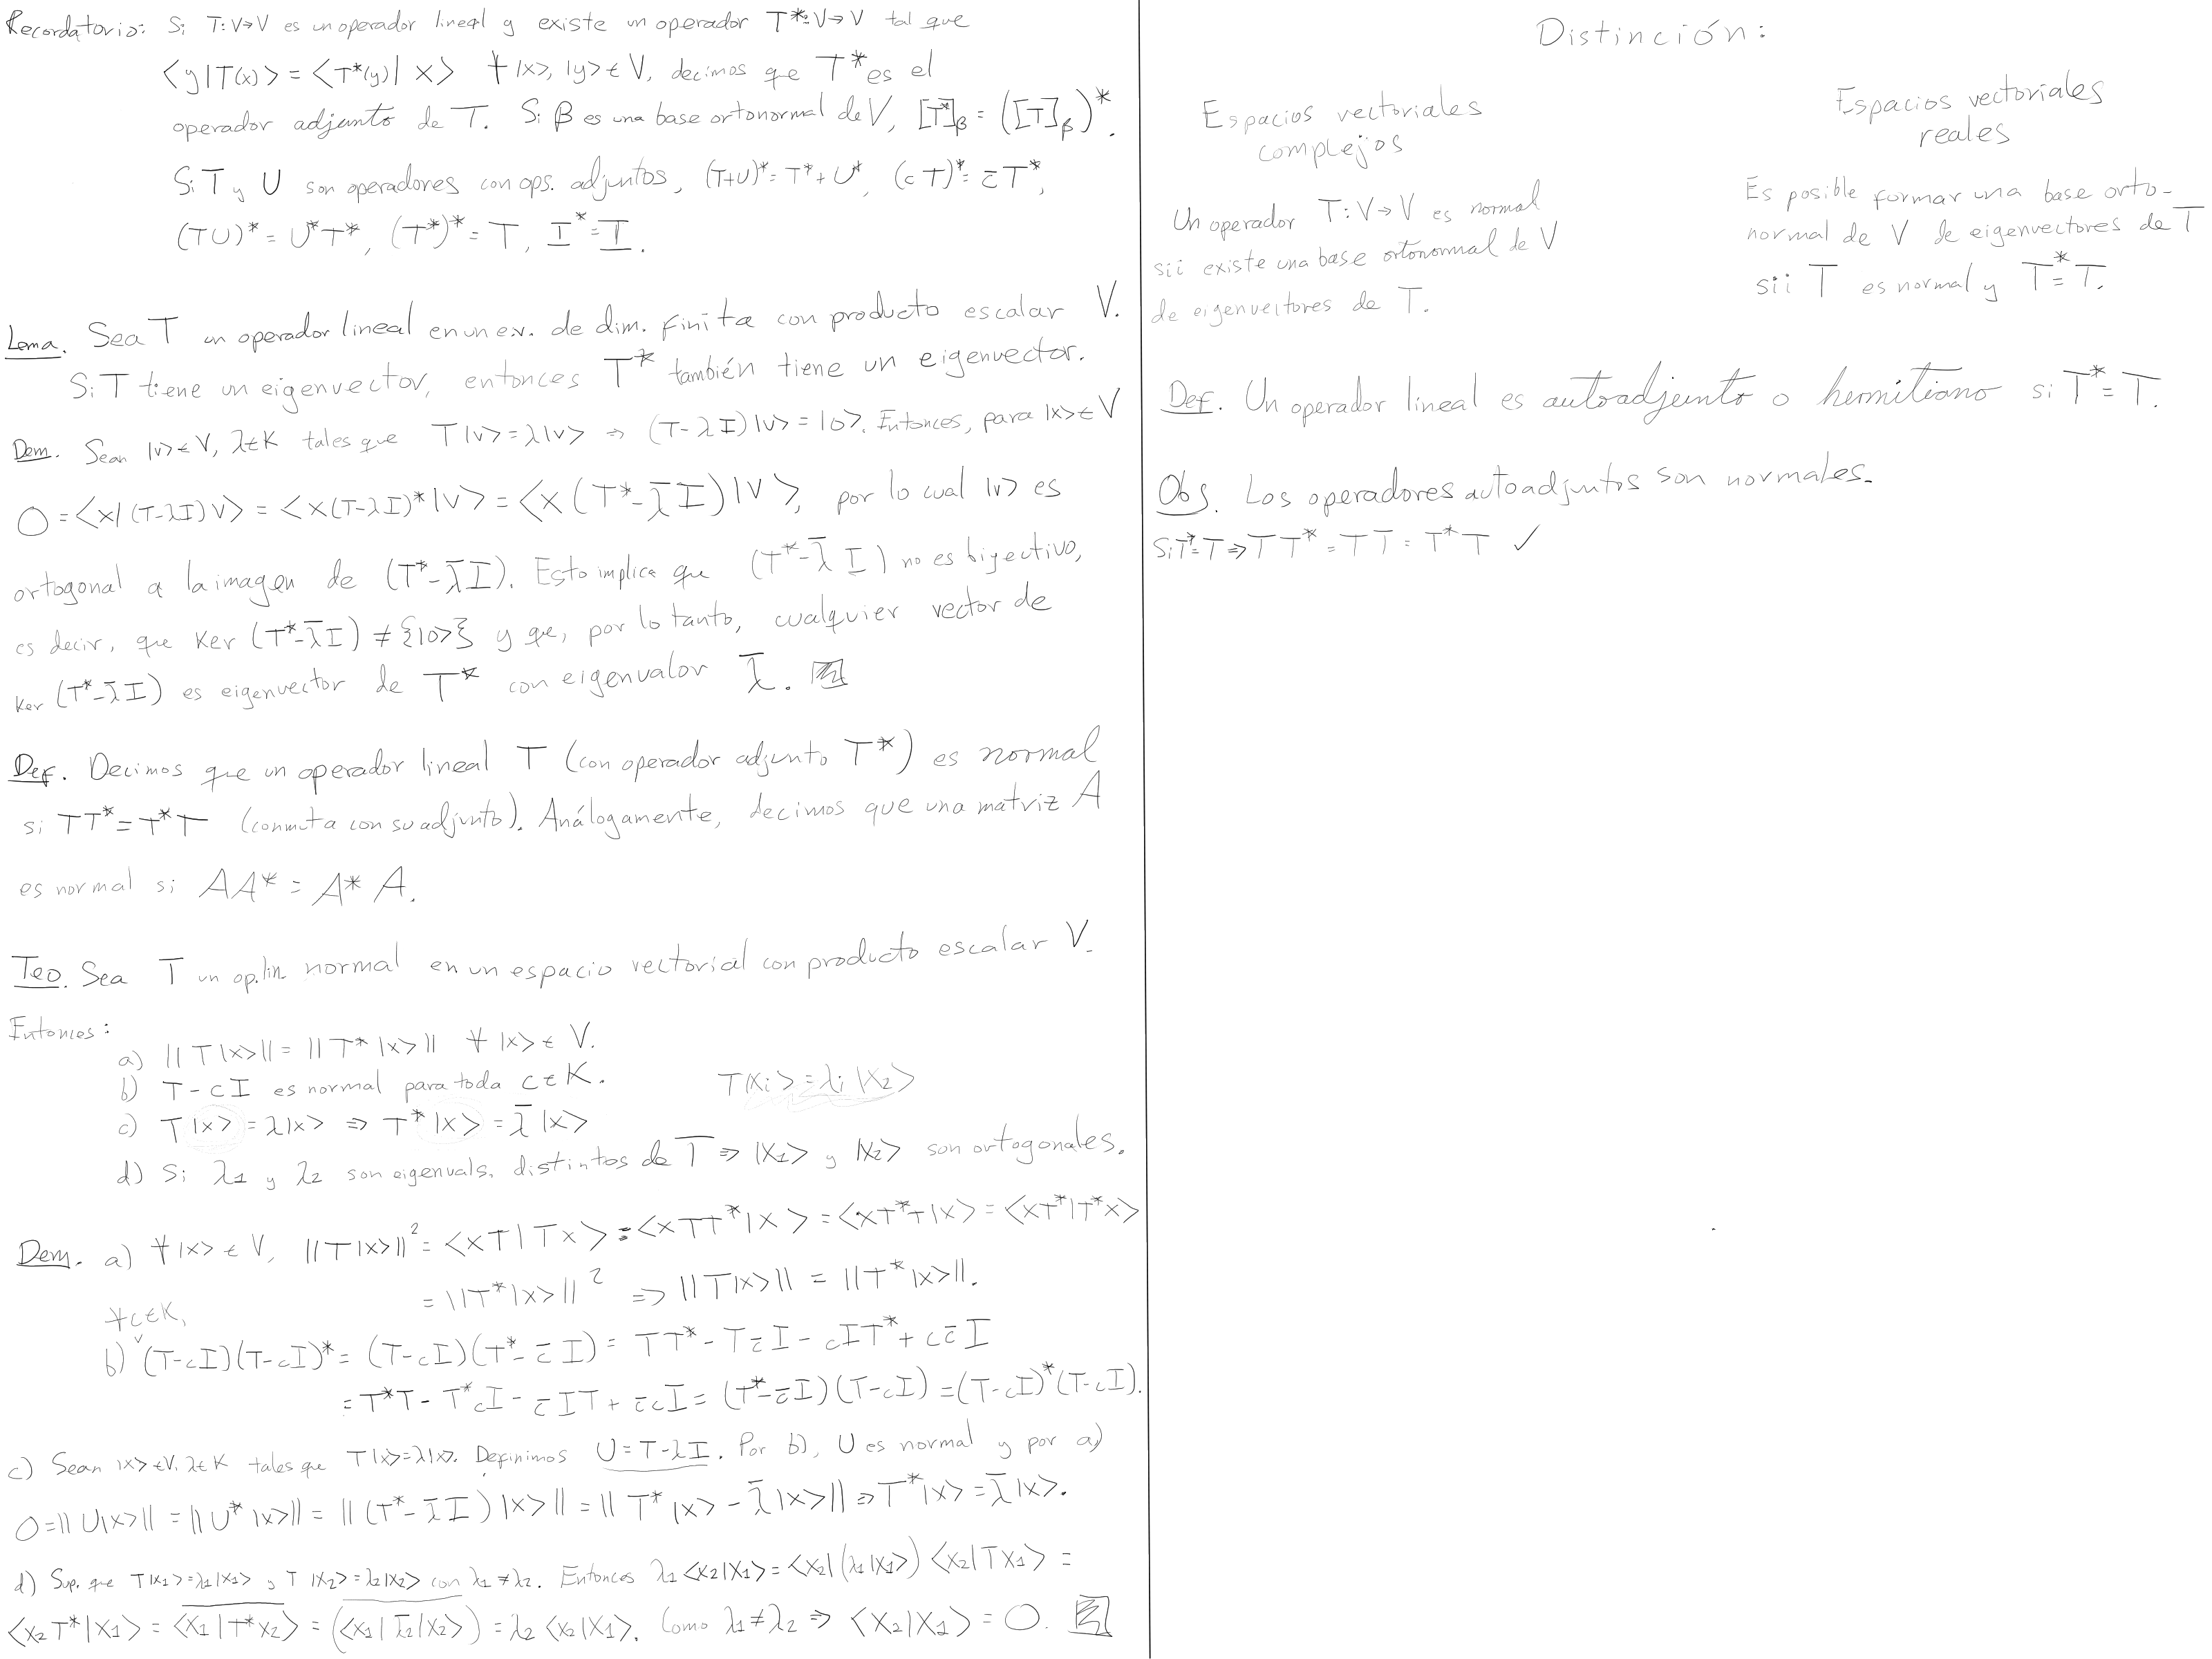 Recordatorio: Si T:V→V es un operador lineal y existe un operador T*:V→V tal que
⟨y|T(x)⟩ = ⟨T*(y)|x⟩ ∀ |x⟩, |y⟩ ∈ V, decimos que T* es el
operador adjunto de T. Si β es una base ortonormal de V, [T*]_β = ([T]_β)*.
Si T y U son operadores con ops. adjuntos, (T+U)* = T* + U*, (cT)* = c̅T*,
(TU)* = U*T*, (T*)* = T, I* = I.
Lema. Sea T un operador lineal en un e.v. de dim. finita con producto escalar V.
Si T tiene un eigenvector, entonces T* también tiene un eigenvector.
Dem. Sean |v⟩ ∈ V, λ∈K tales que T|v⟩ = λ|v⟩ ⇒ (T-λI)|v⟩ = |0⟩. Entonces, para |x⟩ ∈ V
0 = ⟨x|(T-λI)v⟩ = ⟨x(T-λI)*|v⟩ = ⟨x(T*-λ̅I)|v⟩, por lo cual |v⟩ es
ortogonal a la imagen de (T*-λ̅I). Esto implica que (T*-λ̅I) no es biyectivo,
es decir, que Ker(T*-λ̅I) ≠ {|0⟩} y que, por lo tanto, cualquier vector de
Ker(T*-λ̅I) es eigenvector de T* con eigenvalor λ̅.
Def. Decimos que un operador lineal T (con operador adjunto T*) es normal
si TT* = T*T (conmuta con su adjunto). Análogamente, decimos que una matriz A
es normal si AA* = A*A.
Teo. Sea T un op. lin. normal en un espacio vectorial con producto escalar V.
Entonces:
a) ||T|x⟩|| = ||T*|x⟩|| ∀ |x⟩ ∈ V.
b) T-cI es normal para toda c∈K. T|xi⟩ = λi|x2⟩
c) T|x⟩ = λ|x⟩ ⇒ T*|x⟩ = λ̅|x⟩
d) Si λ1 y λ2 son eigenvals. distintos de T ⇒ |x1⟩ y |x2⟩ son ortogonales.
Dem. a) ∀ |x⟩ ∈ V, ||T|x⟩||² = ⟨xT|Tx⟩ = ⟨xTT*|x⟩ = ⟨xT*T|x⟩ = ⟨xT*|T*x⟩
= ||T*|x⟩||² ⇒ ||T|x⟩|| = ||T*|x⟩||.
∀c∈K,
b) (T-cI)(T-cI)* = (T-cI)(T*-c̅I) = TT* - Tc̅I - cIT* + cc̅I
= T*T - T*cI - c̅IT + c̅cI = (T*-c̅I)(T-cI) = (T-cI)*(T-cI).
c) Sean |x⟩∈V, λ∈K tales que T|x⟩=λ|x⟩. Definimos U=T-λI. Por b), U es normal y por a)
0 = ||U|x⟩|| = ||U*|x⟩|| = ||(T*-λ̅I)|x⟩|| = ||T*|x⟩ - λ̅|x⟩|| ⇒ T*|x⟩ = λ̅|x⟩.
d) Sup. que T|x1⟩=λ1|x1⟩ y T|x2⟩=λ2|x2⟩ con λ1≠λ2. Entonces λ1⟨x2|x1⟩ = ⟨x2|(λ1|x1⟩) ⟨x2|Tx1⟩ =
⟨x2T*|x1⟩ = \overline{⟨x1|T*x2⟩} = \overline{(⟨x1|λ̅2|x2⟩)} = λ2⟨x2|x1⟩. Como λ1≠λ2 ⇒ ⟨x2|x1⟩ = 0.
Distinción:
Espacios vectoriales
complejos
Un operador T:V→V es normal
sii existe una base ortonormal de V
de eigenvectores de T.
Espacios vectoriales
reales
Es posible formar una base orto-
normal de V de eigenvectores de T
sii T es normal y T* = T.
Def. Un operador lineal es autoadjunto o hermitiano si T* = T.
Obs. Los operadores autoadjuntos son normales.
Si T*=T ⇒ TT* = TT = T*T ✓